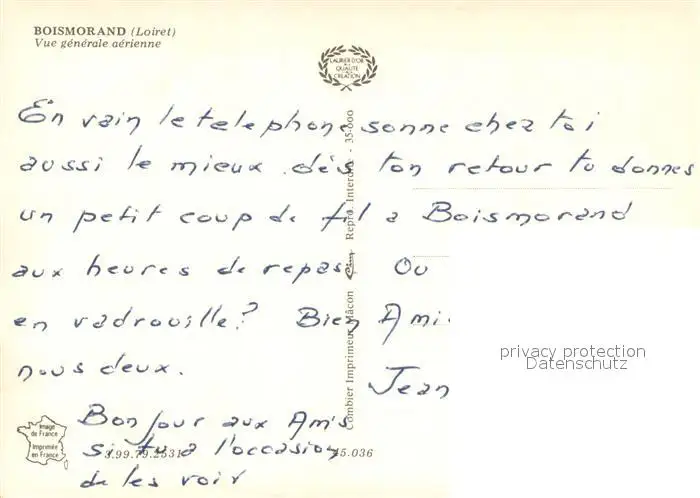 BOISMORAND (Loiret)
Vue générale aérienne
LAURIER D'OR
DE LA
QUALITÉ
CRÉATION
En vain le telephone sonne chez toi
aussi le mieux dès ton retour tu donnes
un petit coup de fil a Boismorand
aux heures de repas. Ou
en vadrouille? Bien Ami
nous deux.
Jean
Bonjour aux Amis
si tu a l'occasion
de les voir
Combier Imprimeur Mâcon Cim Repro. Interdite - 35-000
privacy protection
Datenschutz
Image
de France
Imprimée
en France
3.99.79.2531
45.036